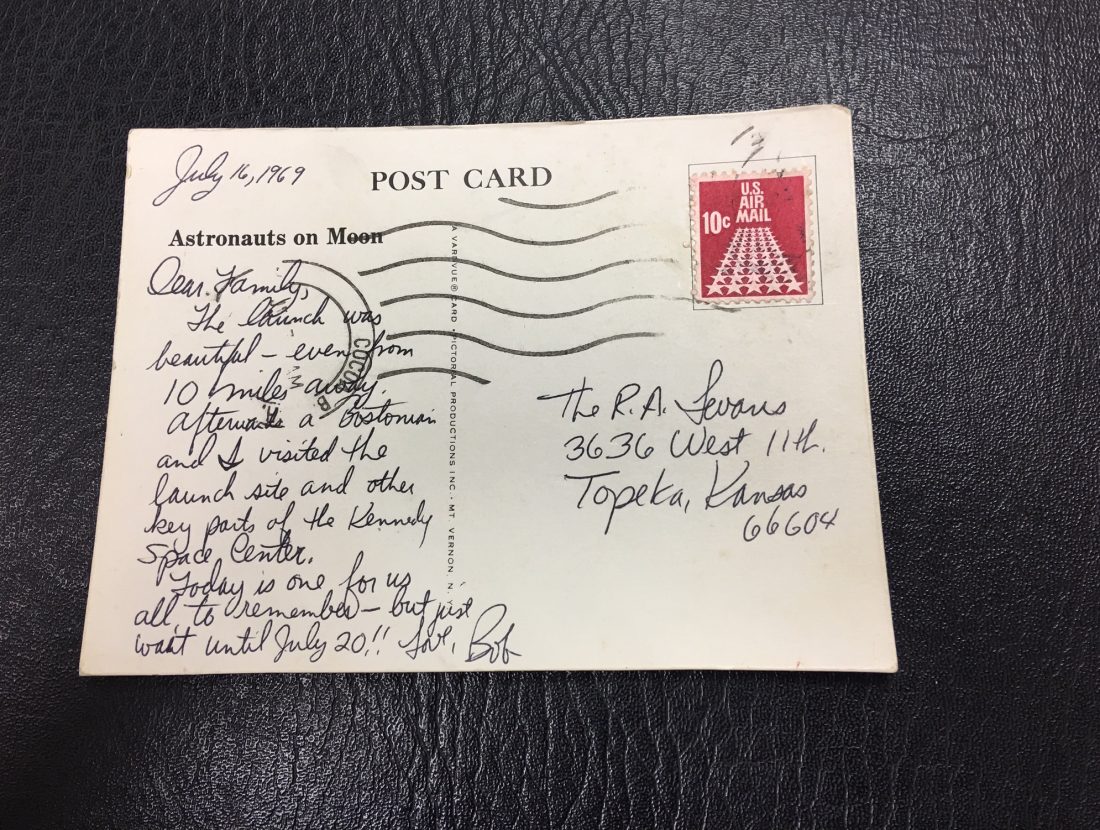 July 16, 1969
POST CARD
Astronauts on Moon
Dear Family,
The launch was
beautiful – even from
10 miles away.
Afterwards a Bostonian
and I visited the
launch site and other
key parts of the Kennedy
Space Center.
Today is one for us
all to remember – but just
wait until July 20!! Love, Bob
A VARI-VUE® CARD • PICTORIAL PRODUCTIONS INC. • MT. VERNON, N.
COCOA B
AM
U.S.
AIR
MAIL
10c
The R.A.
3636 West 11th.
Topeka, Kansas
66604